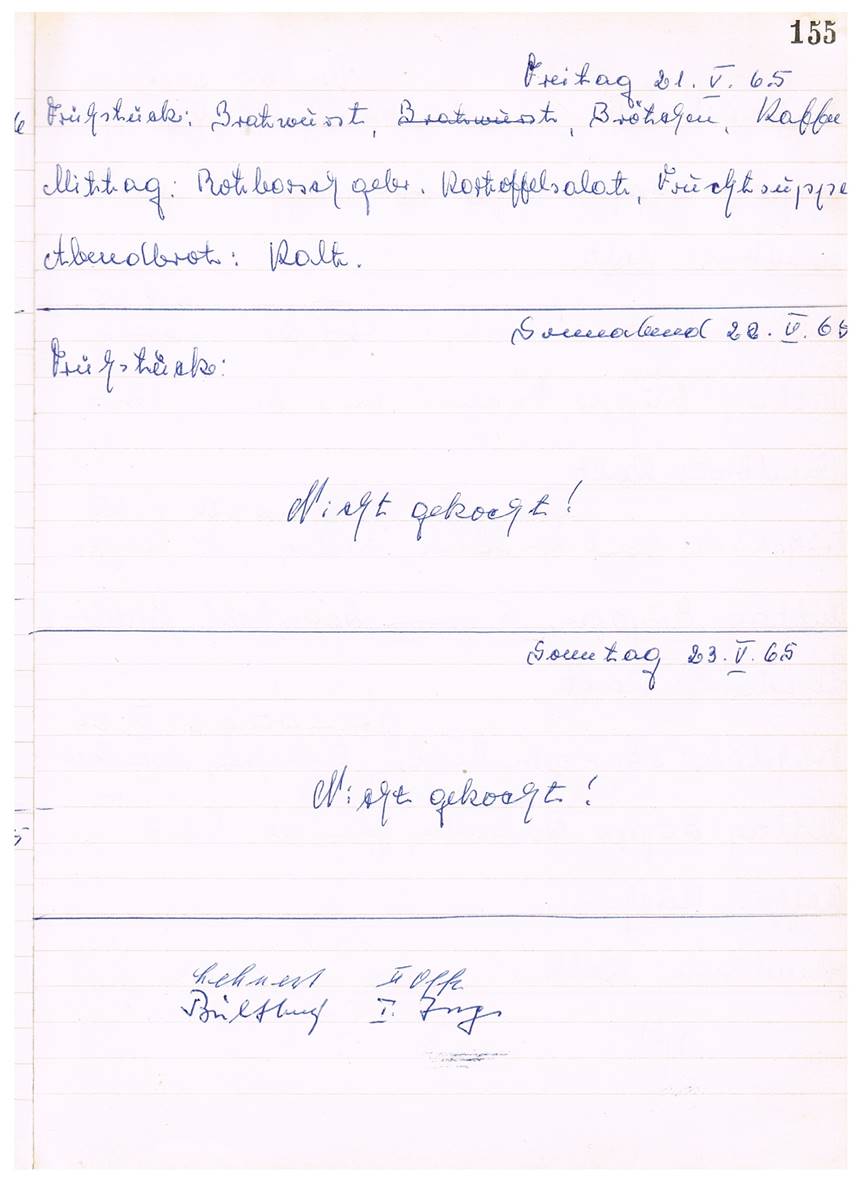 155
Freitag 21. V. 65
Frühstück: Bratwurst, Bratwurst, Brötchen, Kaffee
Mittag: Rotbarsch gebr. Kartoffelsalat, Fruchtsuppe
Abendbrot: Kalt.
Sonnabend 22. V. 65
Frühstück:
Nicht gekocht!
Sonntag 23. V. 65
Nicht gekocht!
Lehnert II Off
I. Ing.